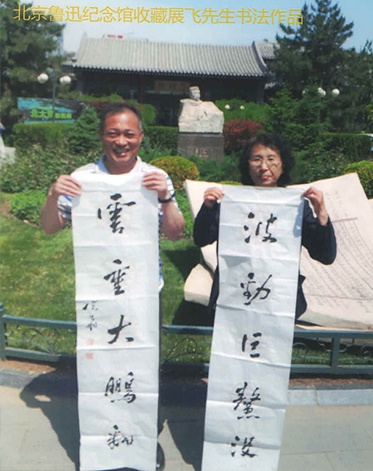 北京鲁迅纪念馆收藏展飞先生书法作品
波動巨鰲没
雲垂大鵬翻